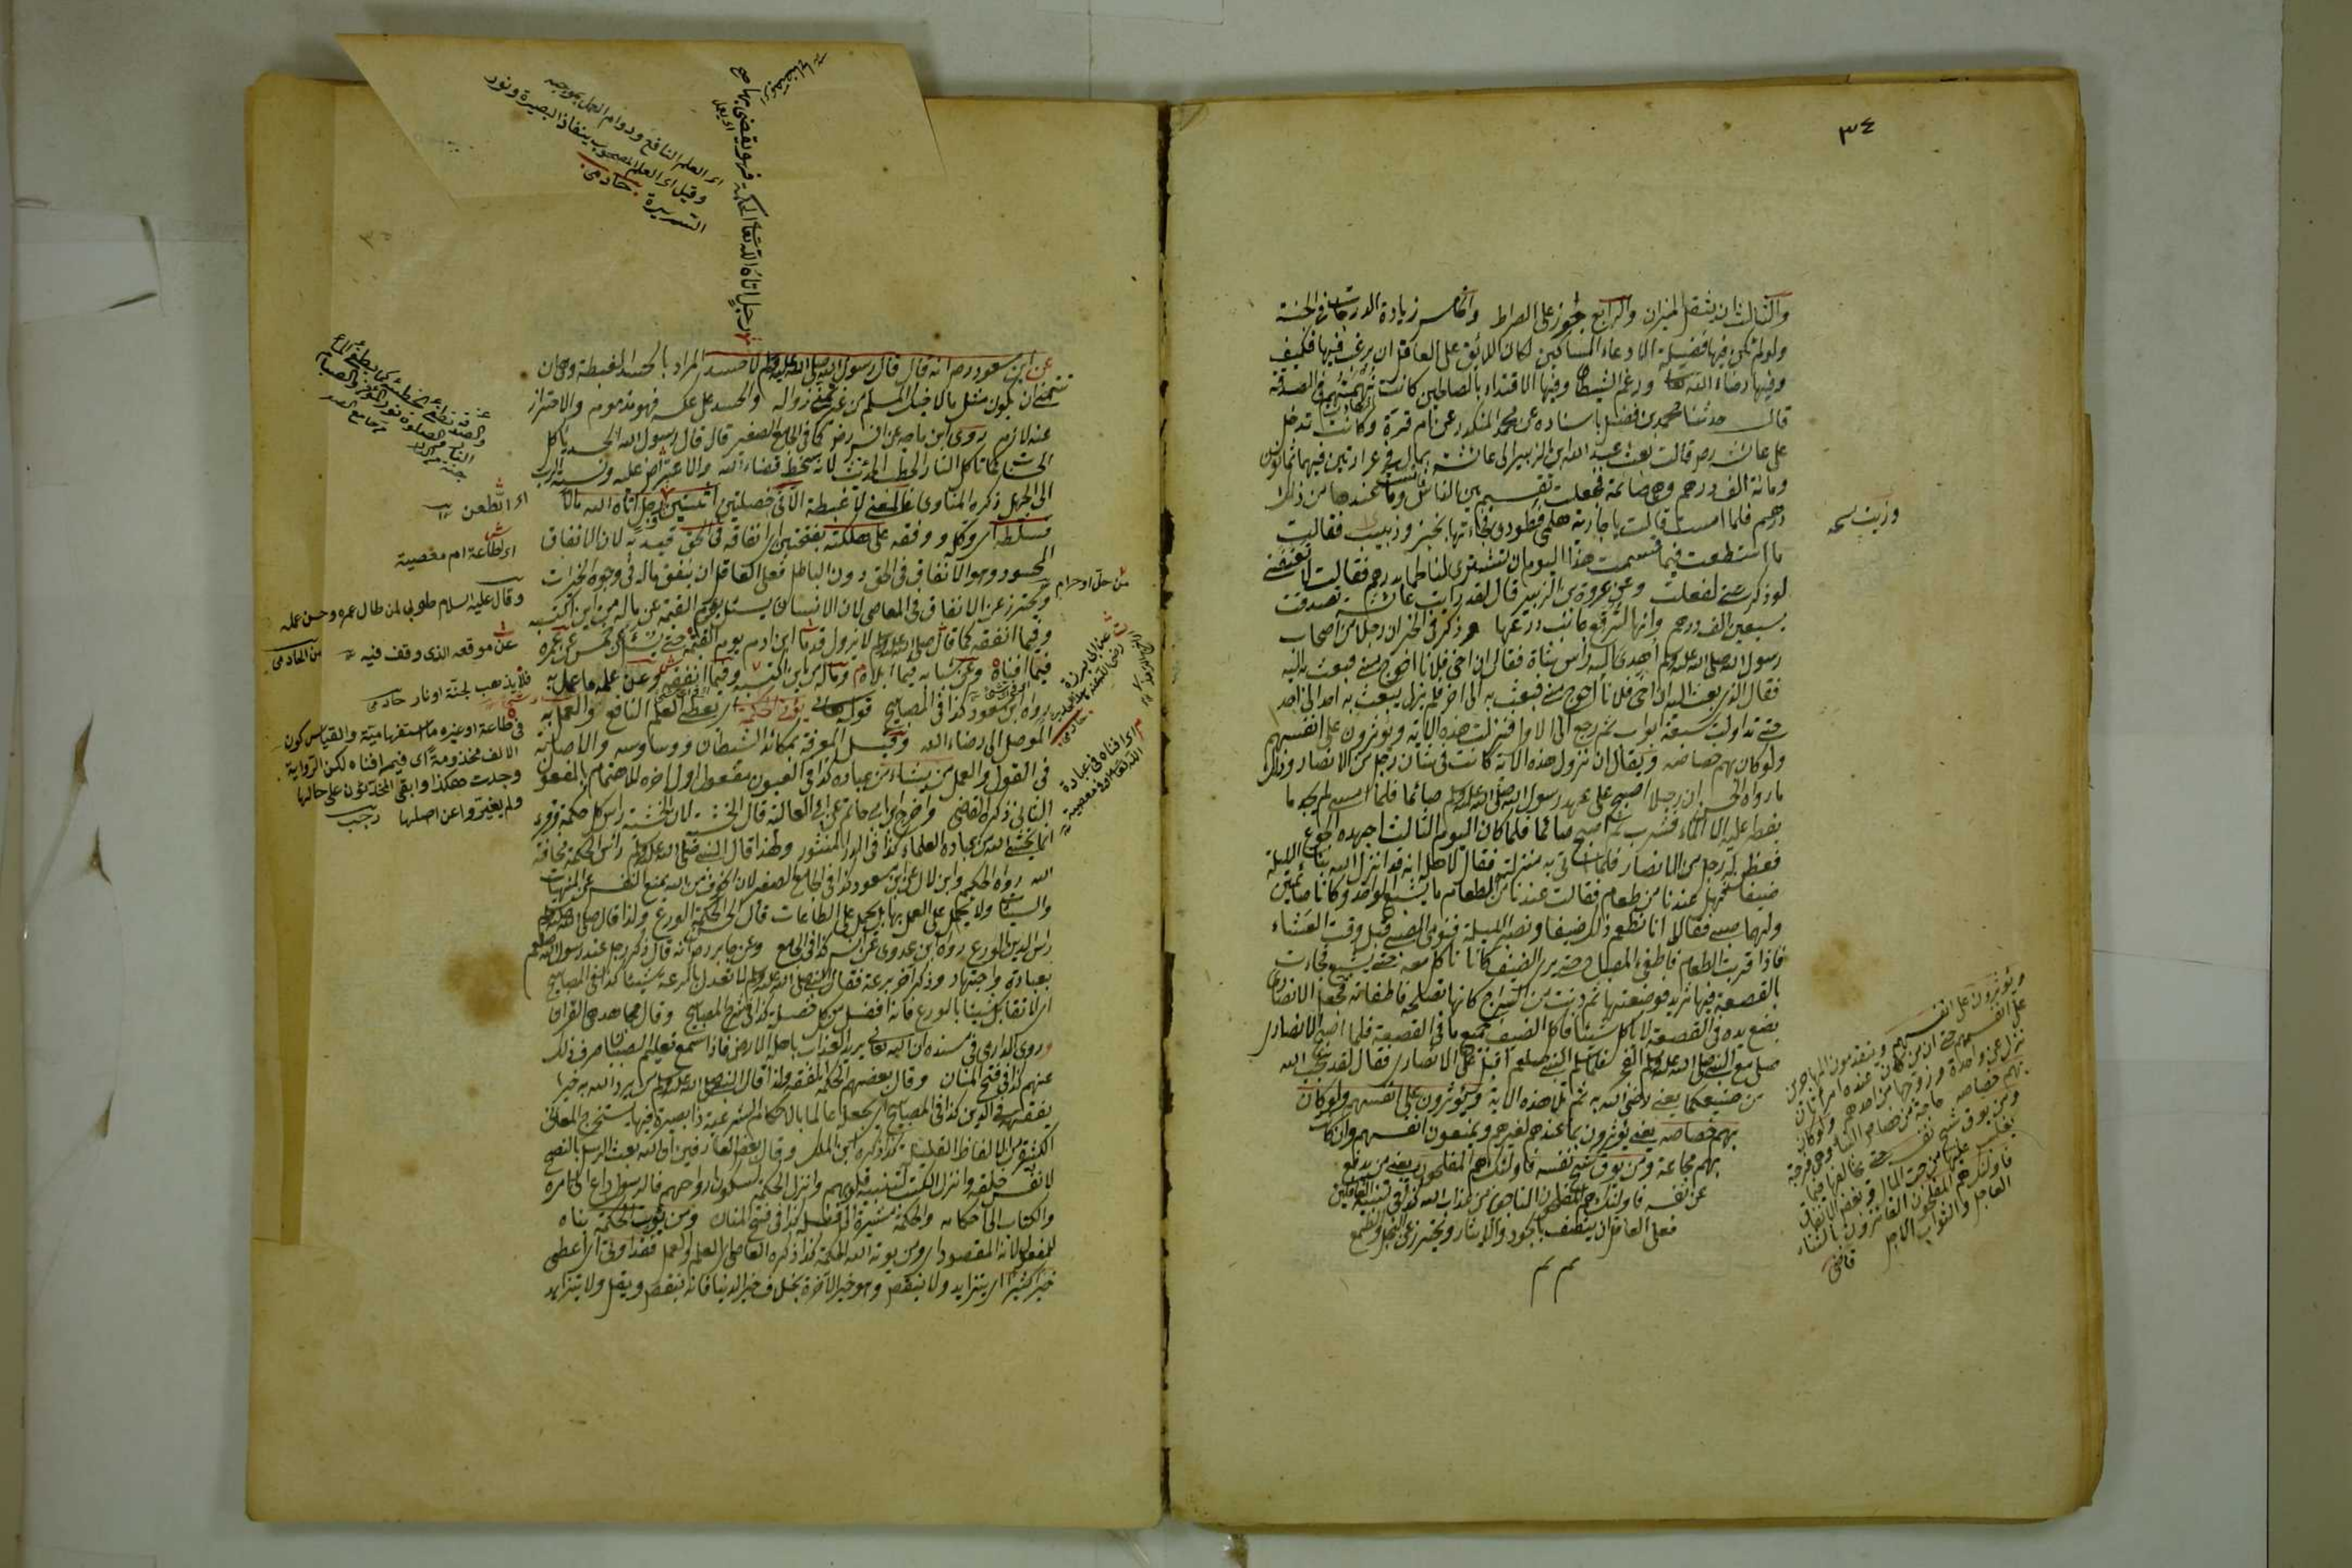 ٣٤
والثالث ان يثقل الميزان والرابع جواز على الصراط والخامس زيادة الدرجات في الجنة
ولو لم تكن فيها فضيلة الا دعاء المساكين لكان اللائق على العاقل ان يرغب فيها فكيف
وفيها رضاء الله تعالى ورغم الشيطان وفيها الاقتداء بالصالحين كانت في الصدقة
قال حدثنا محمد بن الفضل باسناده عن محمد المنكدر عن ام وكانت تدخل
على عائشة رضى قالت بعث عبد الله ابن الزبير الى عائشة بمال في غرارتين فيهما ثمانون
ومائة الف درهم وهي صائمة فجعلت تقسم بين الناس وما عندها من ذلك
درهم فلما امست قالت يا جارية هلمي فطورى فجاءتها بخبز وزيت فقالت
ما استطعت فيما قسمت هذا اليوم ان تشترى لنا لحما بدرهم فقالت لا تعنفني
لو ذكرتني لفعلت وعن عروة بن الزبير قال لقد رايت عائشة تصدقت
بسبعين الف درهم وانها لترقع جانب درعها وذكر في الخبر ان رجلا من اصحاب
رسول الله صلى الله عليه وسلم اهدى اليه راس شاة فقال ان اخي فلانا احوج مني فبعث به اليه
فقال الذي بعث اليه ان اخي فلانا احوج مني فبعث به الى آخر فلم يزل يبعث به احد الى احد
حتى تداولت سبعة ابواب ثم رجع الى الاول فنزلت هذه الآية ويؤثرون على انفسهم
ولو كان بهم خصاصة ويقال ان نزول هذه الآية كانت في شان رجل من الانصار وذلك
ما رواه الحسن ان رجلا اصبح على عهد رسول الله صلى الله عليه وسلم صائما فلما امسى لم يجد ما
يفطر عليه الا الماء فشرب ثم اصبح صائما فلما كان اليوم الثالث اجهده الجوع
ففطن له رجل من الانصار فلما اتى به منزله فقال لاهله انه قد انزل الله بنا الليلة
ضيفا فهل عندنا من طعام فقالت عندنا من الطعام ما يشبع الواحد وكانا صائمين
ولهما صبي فقال لها انا نطعم ذلك ضيفا ونصبر الليلة فنومي الصبي قبل وقت العشاء
فاذا قربت الطعام فاطفئ المصباح حتى يرى الضيف كانا ناكل معه حتى يشبع فجاءت
بالقصعة فيها ثريد فوضعتها ثم دنت من السراج كانها تصلحه فاطفأته فجعل الانصارى
يضع يده في القصعة لا ياكل شيئا فاكل الضيف جميع ما في القصعة فلما اصبح الانصارى
صلى مع النبي صلى الله عليه وسلم الفجر فلما سلم النبي صلعم اقبل على الانصارى فقال لقد عجب الله
من صنيعكما يعني لارضى الله به ثم تلا هذه الآية ويؤثرون على انفسهم ولو كان
بهم خصاصة يعني يؤثرون بما عندهم لغيرهم ويمنعون انفسهم وان كان
بهم مجاعة ومن يوق شح نفسه فاولئك هم المفلحون يعني من يدفع
عن نفسه فاولئك هم المفلحون الناجون من عذاب الله كذا في تنبيه الغافلين
فعلى العاقل ان يتصف بالجود والايثار ويحترز عن البخل والطمع
تم تم
وزيت نسخه
ويؤثرون على انفسهم ويقدمون المهاجرين
على انفسهم حتى ان من كان عنده امرأتان
نزل عن واحدة وزوجها من احدهم ولو كان
بهم خصاصة حاجة من خصاص البناء وهي فرجة
ومن يوق شح نفسه حتى يخالفها فيما
يغلب عليها من حب المال وبغض الانفاق
فاولئك هم المفلحون الفائزون بالثناء
العاجل والثواب الآجل
قاضى
عن ابن مسعود رضى انه قال قال رسول الله صلى الله عليه وسلم لا حسد المراد بالحسد الغبطة وهي ان
تتمنى ان يكون مثل ما لاخيك المسلم من غير تمني زواله والحسد على عكسه فهو مذموم والاحتراز
عنه لازم روى ابن ماجه عن انس رضى كما في الجامع الصغير قال قال رسول الله الحسد ياكل
الحسنات كما تاكل النار الحطب الحديث لانه سخط قضاء الله والاعتراض عليه ونسبة الرب
الى الجهل ذكره المناوى فالمعنى لا غبطة الا في خصلتين اثنتين رجل اتاه الله مالا
فسلطه اى وكله ووفقه على هلكته بفتحتين اى انفاقه في الحق قيد به لان الانفاق
المحسود وهو الانفاق في الحق دون الباطل فعلى العاقل ان ينفق ماله في وجوه الخيرات
ويحترز عن الانفاق في المعاصى لان الانسان يسئل يوم القيمة عن ماله من اين اكتسبه
وفيما انفقه كما قال صلى الله عليه وسلم لا يزول قدما ابن ادم يوم القيمة حتى يسئل عن خمس عن عمره
فيما افناه وعن شبابه فيما ابلاه وماله من اين اكتسبه وفيما انفقه وعن علمه ما عمل به
رواه ابن مسعود كذا في المصابيح قوله تعالى يؤتى الحكمة اى يعطى العلم النافع والعمل به
الموصل الى رضاء الله وقيل المعرفة بمكائد الشيطان ووساوسه والاصابة
في القول والعمل من يشاء من عباده كذا في العيون مفعول اول اخره للاهتمام بالمفعول
الثاني ذكره القاضى واخرج ابن ابي حاتم عن ابي العالية قال الخشية لان الخشية راس كل حكمة وقرء
انما يخشى الله من عباده العلماء كذا في الدر المنثور ولهذا قال النبي صلى الله عليه وسلم رأس الحكمة مخافة
الله رواه الحكيم وابن لال عن ابن مسعود كذا في الجامع الصغير لان الخوف من الله يمنع النفس عن المنهيات
والسيئات ولا يحمل على العمل بها بل يحمل على الطاعات قال الحكمة الورع ولذا قال صلى الله عليه وسلم
راس الدين الورع رواه ابن عدى عن انس كذا في الجامع وعن جابر رضى انه قال ذكر رجل عند رسول الله صلعم
بعبادة واجتهاد وذكر آخر برعة فقال النبي صلى الله عليه وسلم لا تعدل بالرعة شيئا كذا في المصابيح
اى لا تقابل شيئا بالورع فانه افضل من كل فضيلة كذا في شرح المصابيح وقال مجاهد هي القرآن
وروى الدارمي في مسنده ان الله تعالى يريد العذاب باهل الارض فاذا سمع تعليم الصبيان صرف ذلك
عنهم كذا في فتح المنان وقال بعضهم الحكمة الفقه ولذا قال النبي صلى الله عليه وسلم من يرد الله به خيرا
يفقهه في الدين كذا في المصابيح اى يجعله عالما بالاحكام الشرعية ذا بصيرة فيها يستخرج المعاني
الكثيرة من الالفاظ القليلة كذا ذكره ابن الملك وقال بعض العارفين ان الله بعث الرسل بالنصح
لانفس خلقه وانزل الكتب لتنبيه قلوبهم وانزل الحكمة لسكون ارواحهم فالرسول داع الى امره
والكتاب الى احكامه والحكمة مشيرة الى فضله كذا في فتح المنان ومن يؤت الحكمة بناه
للمفعول لانه المقصود اى ومن يؤته الله الحكمة كذا ذكره القاضى اى العلم والعمل فقد اوتى اى اعطى
خيرا كثيرا اى يتزايد ولا ينقص وهو خير الآخرة بخلاف خير الدنيا فانه ينقص ويقل ولا يتزايد
رجل اتاه الله تعالى الحكمة فهو يقضى بها صح
اى العلم النافع ودوام العمل بموجبه
وقيل اى العلم المصحوب بنفاذ البصيرة ونور
السريرة خادمى
اى القطعن
اى لطاعة ام معصية
وقال عليه السلام طوبى لمن طال عمره وحسن عمله
عن موقعه الذى وقف فيه
من الخادمى
فلا يذهب لجنة او نار خادمى
في طاعة او غيره ما استفهامية والقياس كون
الالف محذوفة اى فيم افناه لكن الرواية
وجدت هكذا وابقى المحدثون على حالها
ولم يغيروا عن اصلها رجب
من حل او حرام
عن ابى برزة
رضى الله عنه
خادمى
اى افناه في عبادة
الله تعالى او في معصية